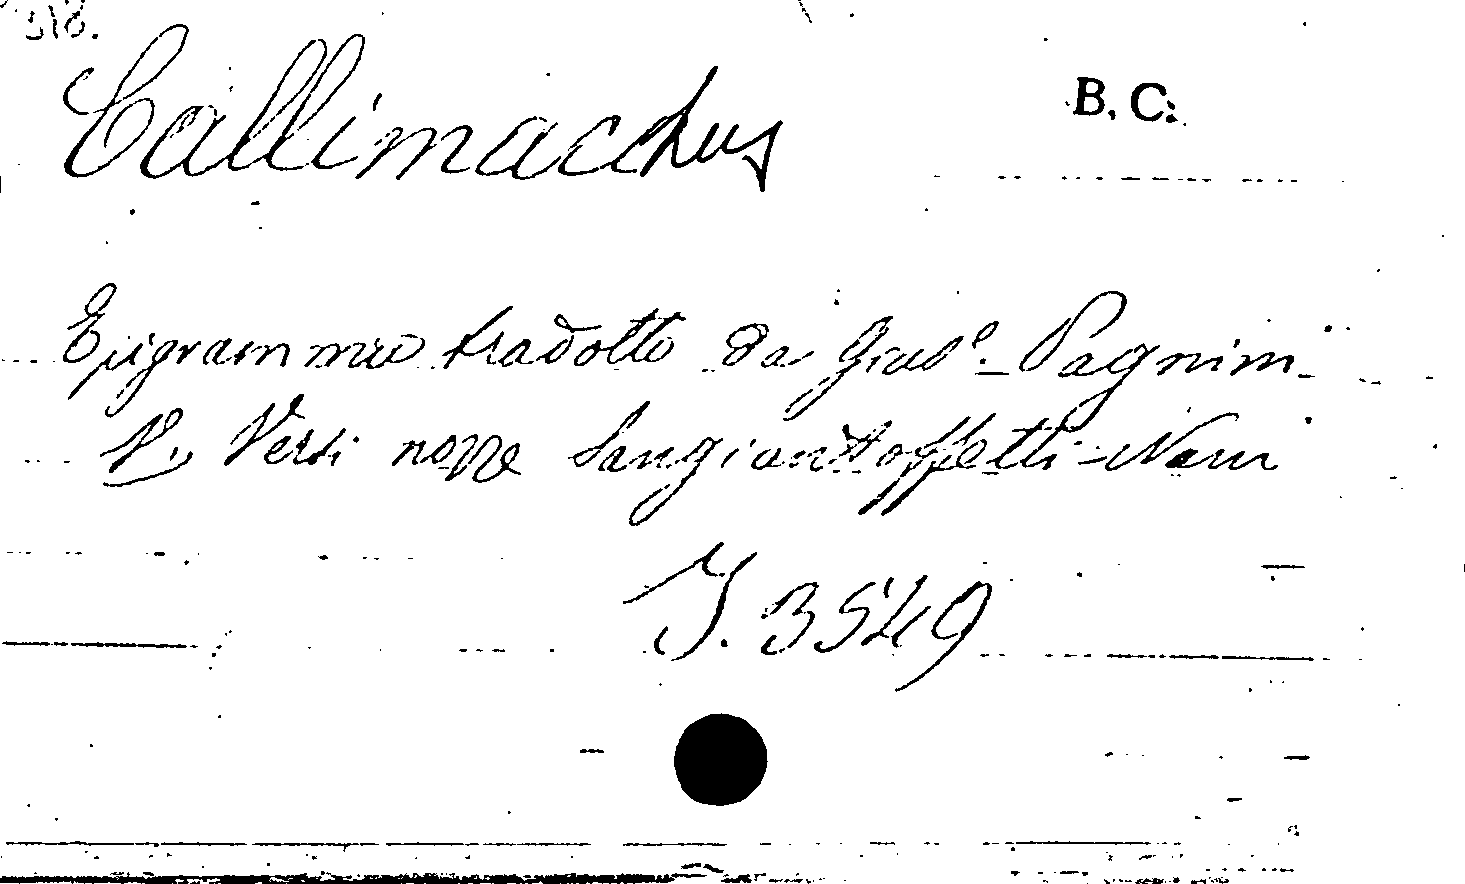 318.
Callimachus
B. C.
Epigramma tradotto da Gius.e Pagnini.
V. Versi nozze Sangiantoffetti-Nani
I. 3549